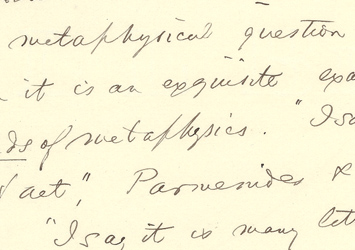 metaphysical question
it is an exquisite exa
ds of metaphysics. "Isa
act", Parmenides &
"I say it is many let